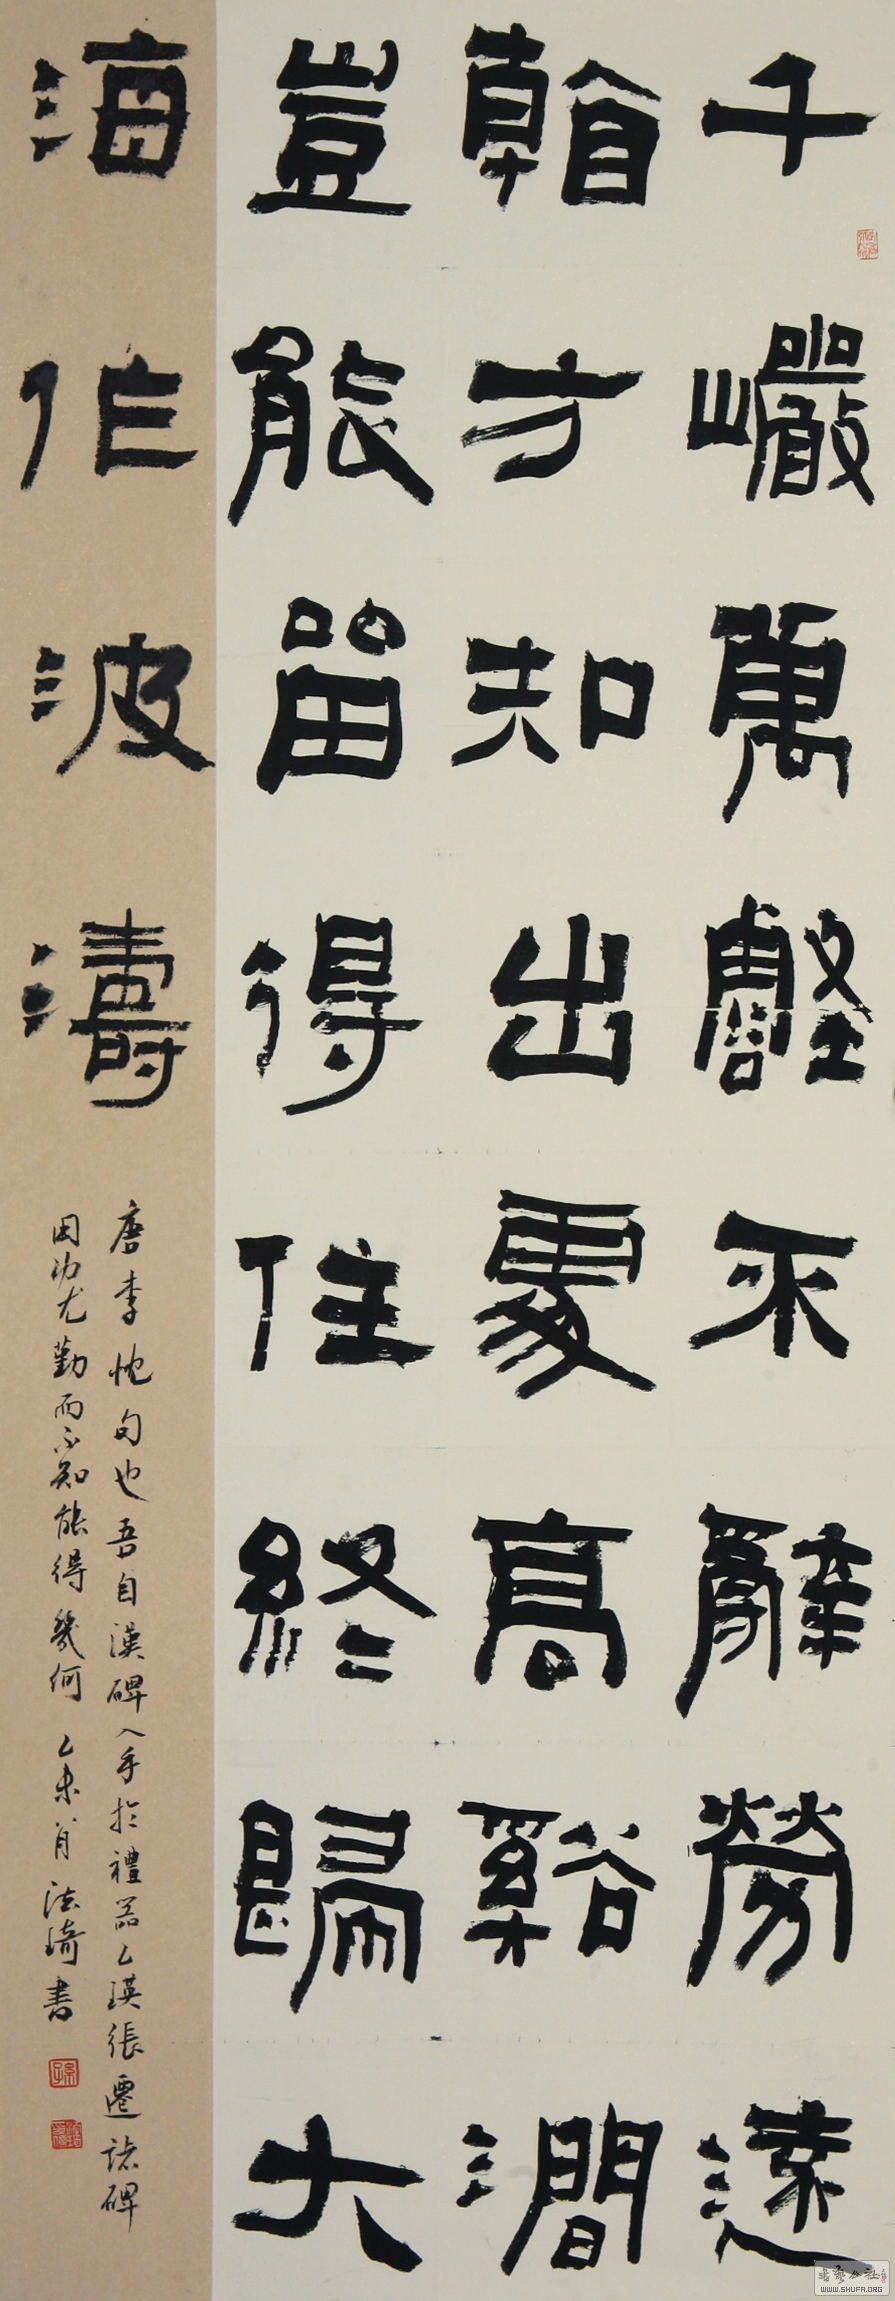 千巖萬壑不辭勞遠
看方知出處高谿澗
豈能留得住終歸大
海作波濤
唐李忱句也吾自漢碑入手於禮器乙瑛張遷諸碑
用功尤勤而不知能得幾何 乙未八月法琦書
書法公社
WWW.SHUFA.ORG